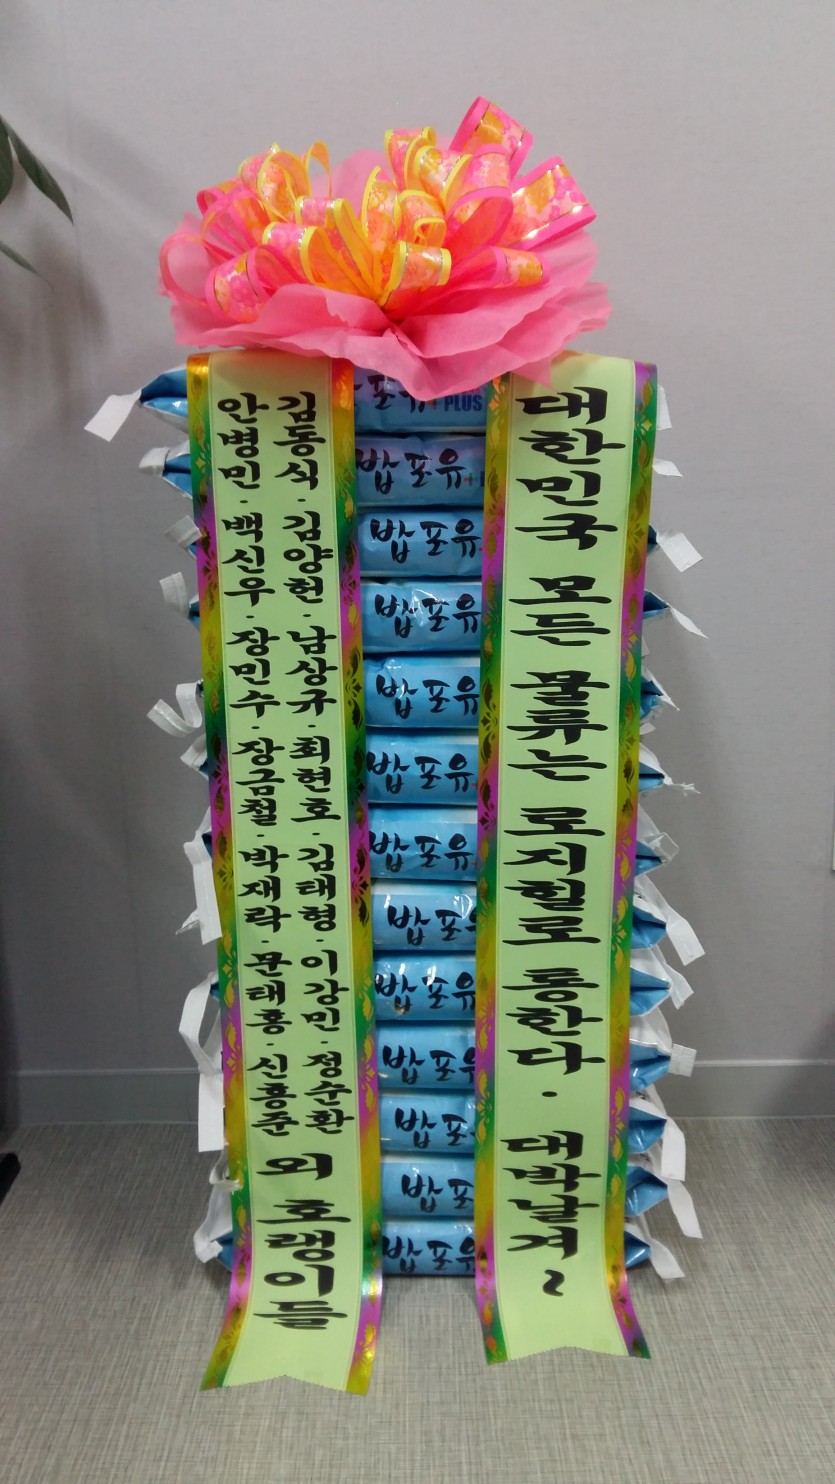 김동식·김양헌·남상규·최현호·김태형·이강민·정순환
안병민·백신우·장민수·장금철·박재락·문태홍·신흥준
외 호랭이들
포유+
PLUS
밥포유+
밥포유
밥포유
밥포유
밥포유
밥포유
밥포유
밥포유
밥포유
밥포
밥포
밥포유
대한민국 모든 물류는 로지힐로 통한다. 대박날겨~